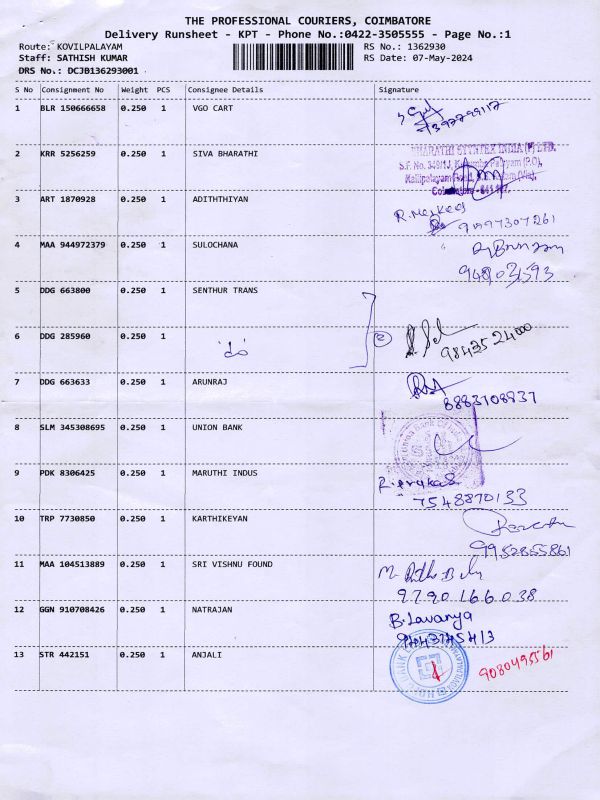 THE PROFESSIONAL COURIERS, COIMBATORE
Delivery Runsheet - KPT - Phone No.:0422-3505555 - Page No.:1
Route: KOVILPALAYAM RS No.: 1362930
Staff: SATHISH KUMAR RS Date: 07-May-2024
DRS No.: DCJB136293001
S No Consignment No Weight PCS Consignee Details Signature
1 BLR 150666658 0.250 1 VGO CART
2 KRR 5256259 0.250 1 SIVA BHARATHI
BHARATHI SYNTEX INDIA (P) LTD.
3 ART 1870928 0.250 1 ADITHTHIYAN
9199730 7261
4 MAA 944972379 0.250 1 SULOCHANA
5 DDG 663800 0.250 1 SENTHUR TRANS
6 DDG 285960 0.250 1 'do' 2
9843524000
7 DDG 663633 0.250 1 ARUNRAJ
8883108837
8 SLM 345308695 0.250 1 UNION BANK
9 PDK 8306425 0.250 1 MARUTHI INDUS
7548870133
10 TRP 7730850 0.250 1 KARTHIKEYAN
9952855861
11 MAA 104513889 0.250 1 SRI VISHNU FOUND
9790166038
12 GGN 910708426 0.250 1 NATRAJAN B.Lavanya
13 STR 442151 0.250 1 ANJALI 9080495561